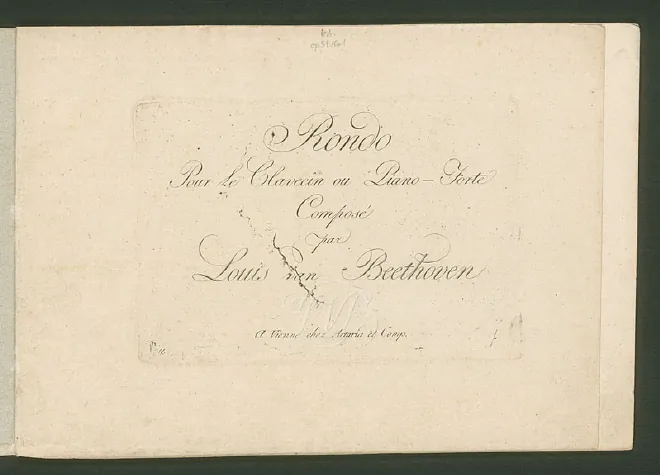 op. 51/1
Rondo
Pour Le Clavecin ou Piano-Forte
Composé
par
Louis van Beethoven
A Vienne chez Artaria et Comp.